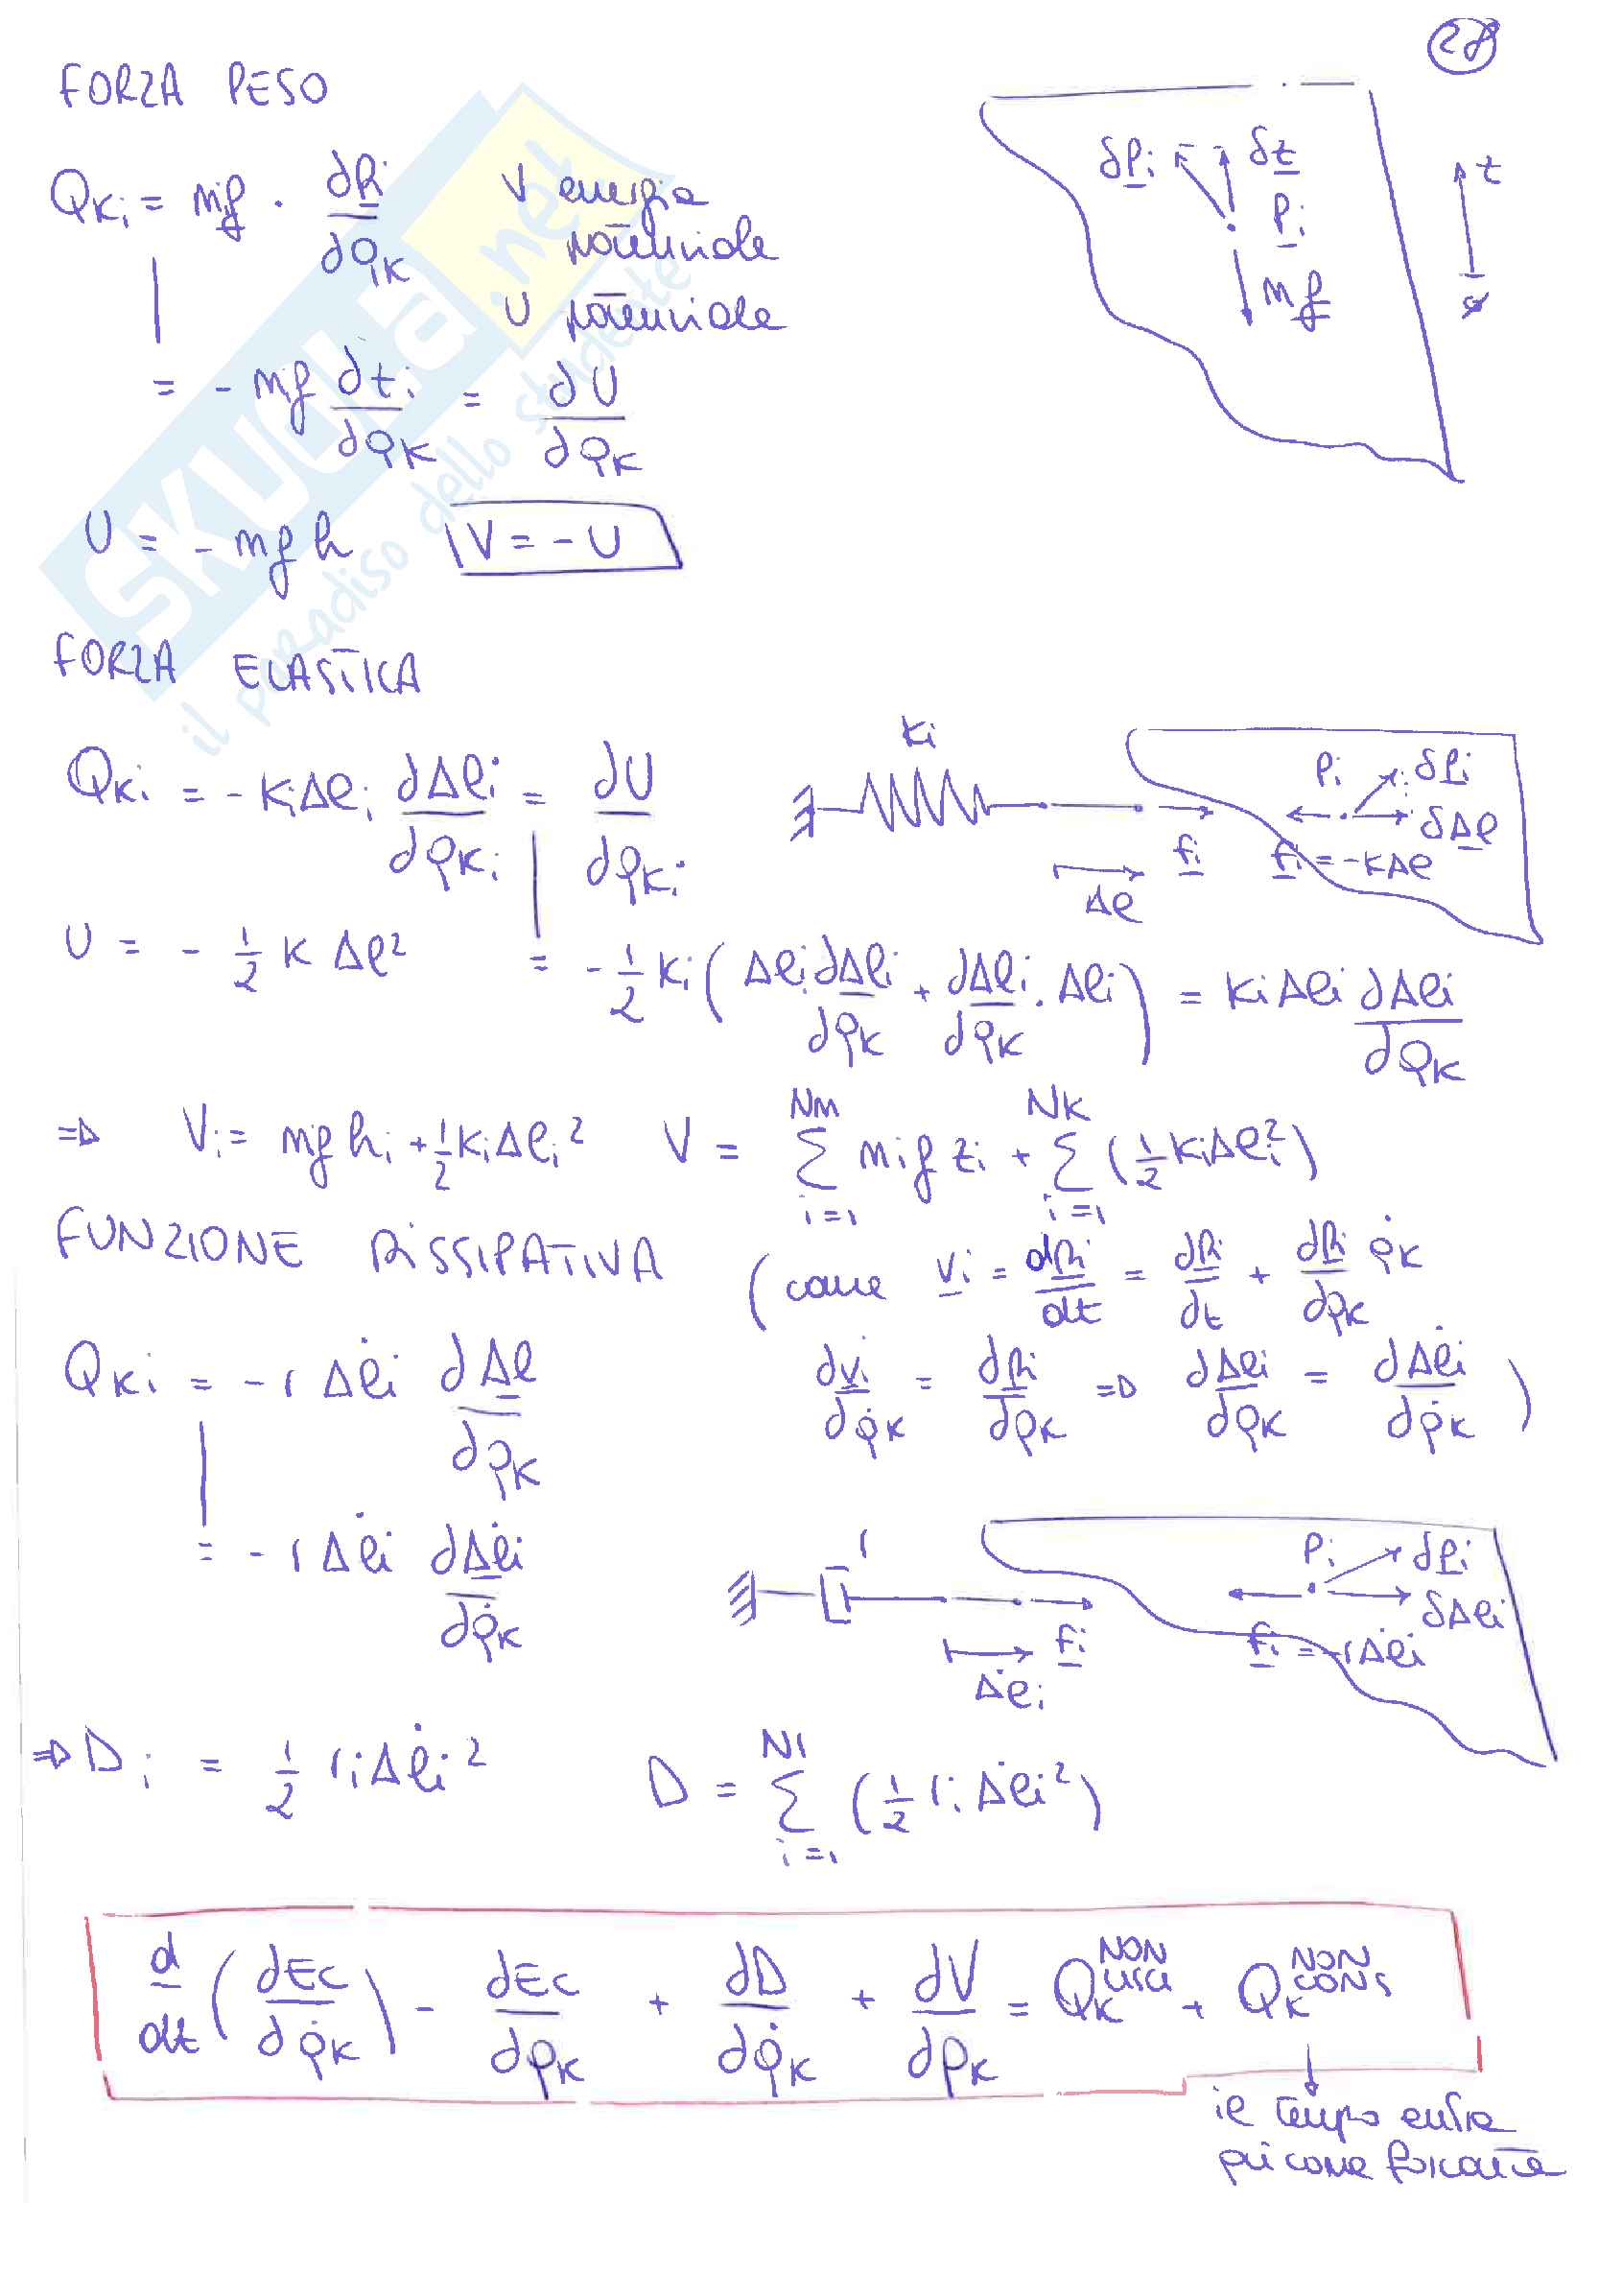 28
FORZA PESO
Qki = mg · ∂Pi/∂qk
V energia potenziale
U potenziale
= - mg ∂zi/∂qk = ∂U/∂qk
U = - mgh V = - U
δPi δz
Pi
mg
z
FORZA ELASTICA
Qki = - kiΔli ∂Δli/∂qki = ∂U/∂qki
U = - 1/2 k Δl² = - 1/2 ki (Δli ∂Δli/∂qk + ∂Δli/∂qk · Δli) = kiΔli ∂Δli/∂qk
ki
Δl
fi
Pi δPi
δΔl
fi = -kΔl
⇒ Vi = mghi + 1/2 kiΔli² V = Σ(i=1, Nm) mi g zi + Σ(i=1, Nk) (1/2 kiΔli²)
FUNZIONE DISSIPATIVA
(come vi = dPi/dt = ∂Pi/∂t + ∂Pi/∂qk q̇k
∂vi/∂q̇k = ∂Pi/∂qk ⇒ ∂Δli/∂qk = ∂Δl̇i/∂q̇k )
Qki = - r Δl̇i ∂Δl/∂qk
= - r Δl̇i ∂Δl̇i/∂q̇k
r
Δl̇i
fi
Pi δPi
δΔli
fi = -rΔl̇i
⇒ Di = 1/2 riΔl̇i² D = Σ(i=1, Nr) (1/2 ri Δl̇i²)
d/dt (∂Ec/∂q̇k) - ∂Ec/∂qk + ∂D/∂q̇k + ∂V/∂qk = Qk^NON + Qk^NON CONS
il tempo entra
qui come forzante
SKUOLA.net
il paradiso dello studente